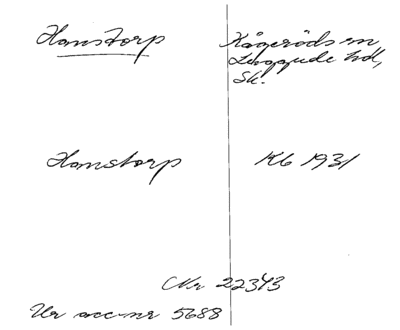 Hanstorp
Kågeröds sn
Luggude hd,
Sk.
Hanstorp
Kb 1931
Nr 22343
Ur acc-nr 5688